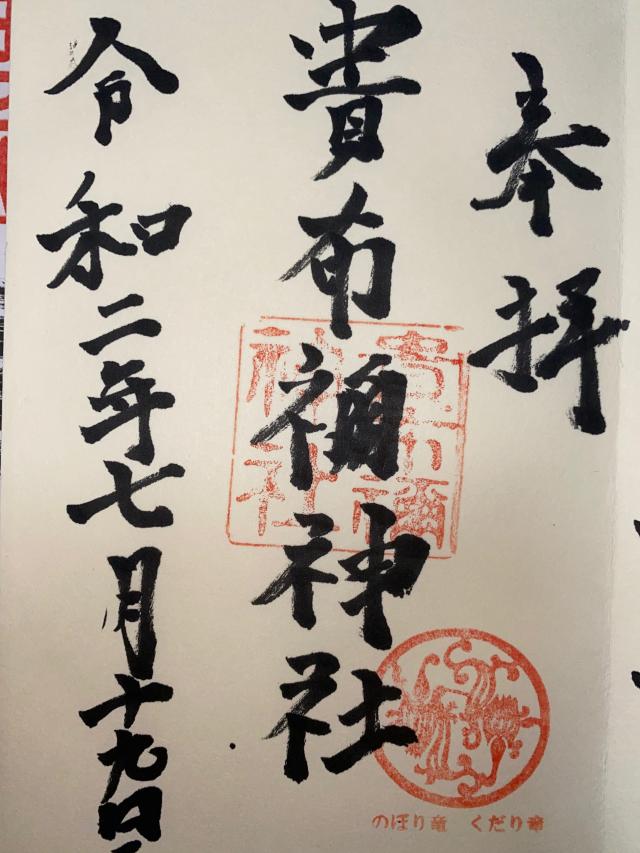 奉拝
貴布禰神社
貴布禰
神社
のぼり竜 くだり竜
令和二年七月十九日